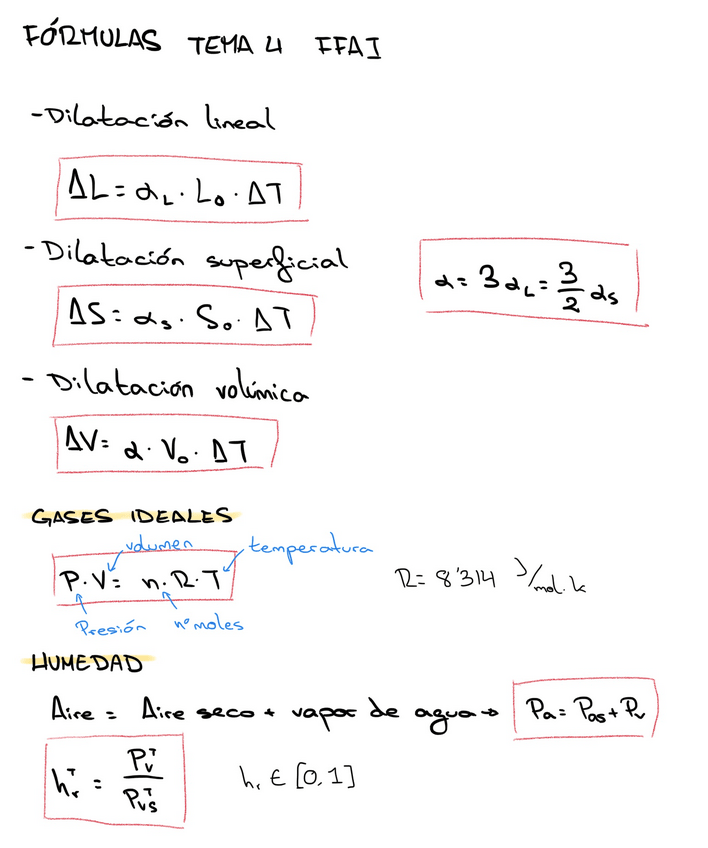 FÓRMULAS TEMA 4 FFAI
- Dilatación lineal
ΔL = α_L · L₀ · ΔT
- Dilatación superficial
α = 3α_L = 3/2 α_S
ΔS = α_S · S₀ · ΔT
- Dilatación volúmica
ΔV = α · V₀ · ΔT
GASES IDEALES
volumen temperatura
P · V = n · R · T
R = 8'314 J/mol·K
Presión nº moles
HUMEDAD
Aire = Aire seco + vapor de agua → P_a = P_as + P_v
h_r^T = P_v^T / P_vs^T
h_r ∈ [0,1]